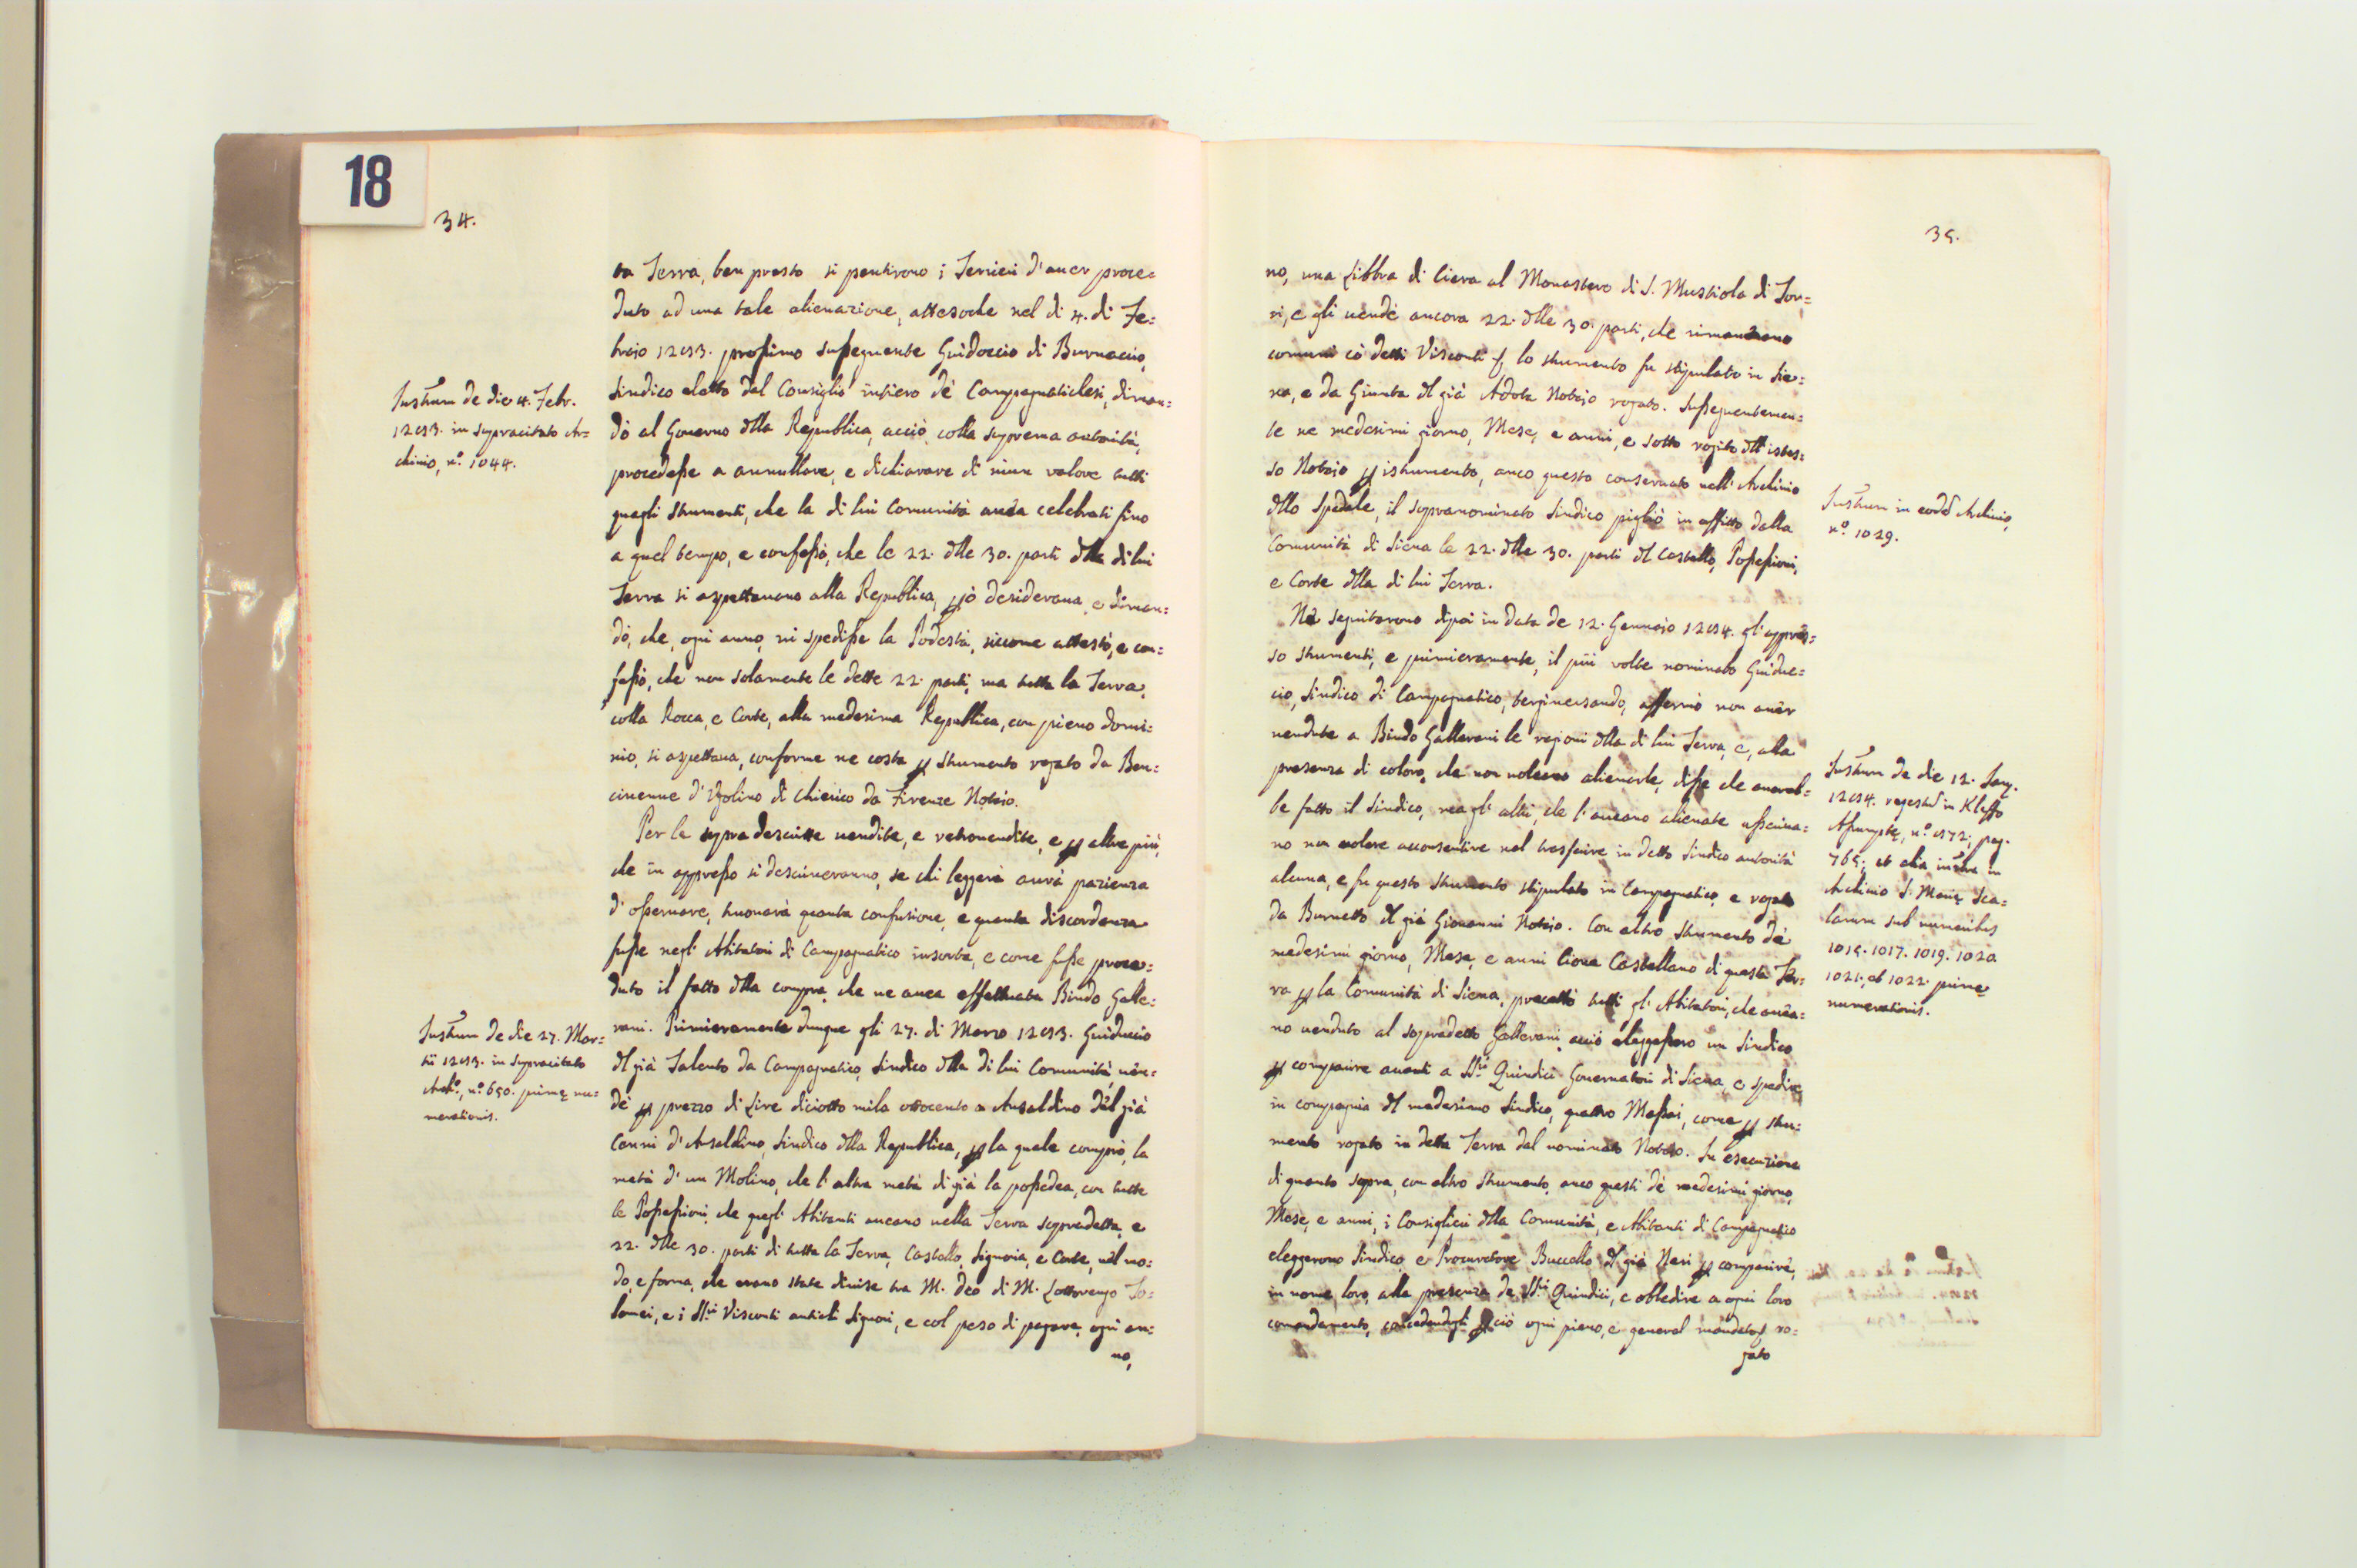 18
34.
ta Terra, ben presto si pentirono i Terrieri d'aver proce=
duto ad una tale alienazione, attesoche nel di 4. di Fe=
brajo 1293. prossimo sussequente Guidoccio di Burnaccio,
Sindico eletto dal Consiglio intiero dè Campagnatichesi, diman=
dò al Governo dlla Republica, acciò, colla suprema autorità,
procedesse a annullare, e dichiarare di niun valore tutti
quegli strumenti, che la di lui Comunità avea celebrati fino
a quel tempo, e confessò, che le 22. dlle 30. parti dlla di lui
Terra si aspettavano alla Republica, pciò desiderava, e diman=
dò, che, ogni anno, vi spedisse la Podestà, siccome attestò, e con=
fessò, che non solamente le dette 22. parti, ma tutta la Terra,
colla Rocca, e Corte, alla medesima Republica, con pieno domi=
nio, si aspettava, conforme ne costa p strumento rogato da Ben=
civenne d'Ugolino di Chierico da Firenze Notaio.
Per le sopra descritte vendite, e retrovendite, e p altre più,
che in appresso si descriveranno, se chi leggerà avrà pazienza
d'osservare, truovarà quanta confusione, e quanta discordanza
fusse negl'Abitatori di Campagnatico insorta, e come fusse proce=
duto il fatto dlla compra, che ne avea effettuata Bindo Galle=
rani. Primieramente dunque gli 27. di Marzo 1293. Guiduccio
dl già Talento da Campagnatico, Sindico dlla di lui Comunità, ven=
dè p prezzo di Lire diciotto mila ottocento a Ansaldino dèl già
Canni d'Ansaldino, Sindico dlla Republica, p la quale comprò, la
metà d'un Molino, che l'altra metà di già la possedea, con tutte
le Possessioni, che quegl'Abitanti aveano nella Terra sopradetta, e
22. dlle 30. parti di tutta la Terra, Castello, Signoria, e Corte, nèl mo=
do, e forma, che erano state divise tra M. Deo di M. Lottorengo To=
lomei, e i SSri Visconti antichi Signori, e col peso di pagare, ogni an=
no,
Instrum de die 4. Febr.
1293. in supracitato Ar=
chivio, nº. 1044.
Instrum de die 27. Mar=
tii 1293. in supracitato
Archº., nº. 650. prime nu=
merationis.
35.
no, una Libbra di Ciera al Monastero di S. Mustiola di Tor=
ri, e gli vendè ancora 22. dlle 30. parti, che rimanevano
comuni cò detti Visconti, lo strumento fu stipulato in Sie=
na, e da Giunta dl già Adota Notaio rogato. Sussequentemen=
te ne medesimi giorno, Mese, e anni, e sotto rogito dll'istes=
so Notaio p istrumento, anco questo conservato nell'Archivio
dllo Spedale, il sopranominato Sindico pigliò in affitto dalla
Comunità di Siena le 22. dlle 30. parti dl Castello, Possessioni,
e Corte dlla di lui Terra.
Ne seguitarono dipoi in data de 12. Gennajo 1294. gl'appres=
so strumenti, e primieramente, il più volte nominato Guiduc=
cio, Sindico di Campagnatico, tergiversando, affermò non aver
vendute a Bindo Gallerani le ragioni dlla di lui Terra, e, alla
presenza di coloro, che non voleano alienarle, disse che avereb=
be fatto il Sindico, ma gl'altri, che l'aveano alienate
no non volere acconsentire nel trasferire in detto Sindico autorità
alcuna, e fu questo strumento stipulato in Campagnatico, e rogato
da Burnetto dl già Giovanni Notaio. Con altro strumento dè
medesimi giorno, Mese, e anni Ciona Castellano di questa Ter=
ra p la Comunità di Siena, precettò tutti gl'Abitatori, che avea=
no venduto al sopradetto Gallerani, acciò eleggessero un Sindico
p comparire avanti a SSri Quindici Governatori di Siena, e spedire,
in compagnia dl medesimo Sindico, quattro Massari, come p stru=
mento rogato in detta Terra dal nominato Notaio. In esecuzione
di quanto sopra, con altro strumento, anco questi dè medesimi giorno,
Mese, e anni, i Consiglieri dlla Comunità, e Abitanti di Campagnatico
eleggerono Sindico, e Procuratore Buccello dl già Neri p comparire,
in nome loro, alla presenza de SSri Quindici, e obbedire a ogni loro
comandamento, concedendogli pciò ogni pieno, e general mandato, ro=
gato
Instrum in eodo Archivio,
nº. 1029.
Instrum de die 12. Jan.
1294. regestrd in Kleffo
Assumpte, nº. 972, pag.
765; et etia in
Archivio S. Marie Sca=
larum sub numeribus
1015. 1017. 1019. 1020
1021. et 1022. prime
numerationis.